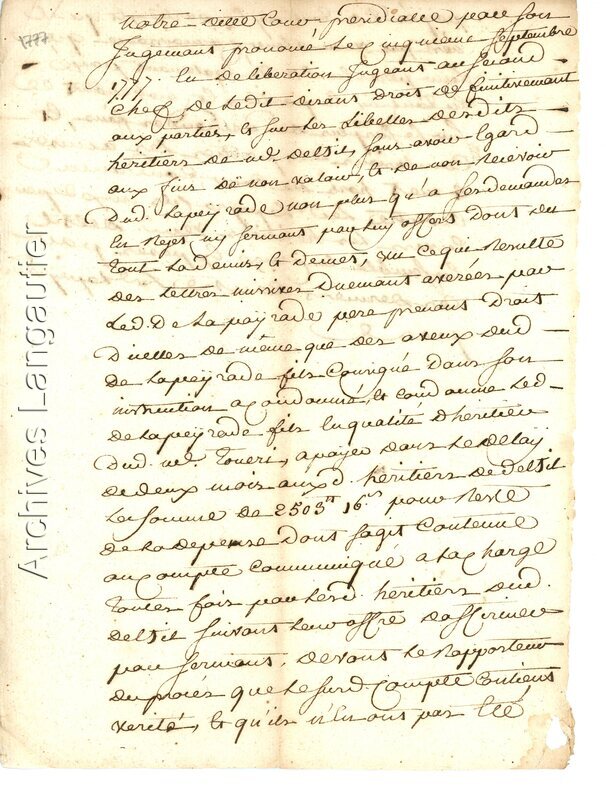 1777
notre ditte Cour presidialle par son
Jugemant prononcé le cinquieme Septembre
1777. En deliberation Jugeant au second
Chef de Ledit disant Droit definitivemant
aux parties, et sur les Libelles desdits
heritiers de me. delsil, sans avoir Egard
aux fins de non valoir, et de non recevoir
Dud. Lapeyrade non plus qu'a ses demandes
En rejet ny sermant par luy offert dont du
tout La demis, et demet, vu ce que resulte
des lettres missives duemant averées par
Led. De Lapeyrade pere prenant Droit
D'icelles de même que des aveux dud.
de Lapeyrade fils Consigné dans son
instruction a condamné, et condamne led.
de Lapeyrade fils En qualité D'heritier
Dud. me. a payer dans le delay
de deux mois auxd. heritiers de delsil
La somme de 2503 tt 16 s pour reste
de la depense dont sagit Contenue
au compte Communiqué a la charge
toutes fois par lesd. heritiers dud.
delsil suivant leur offre d'affirmer
par sermant, devant le rapporteur
du procés que le surd. Compte Contient
verité, et qu'ils n'en ont pas Eté
Archives Langautier